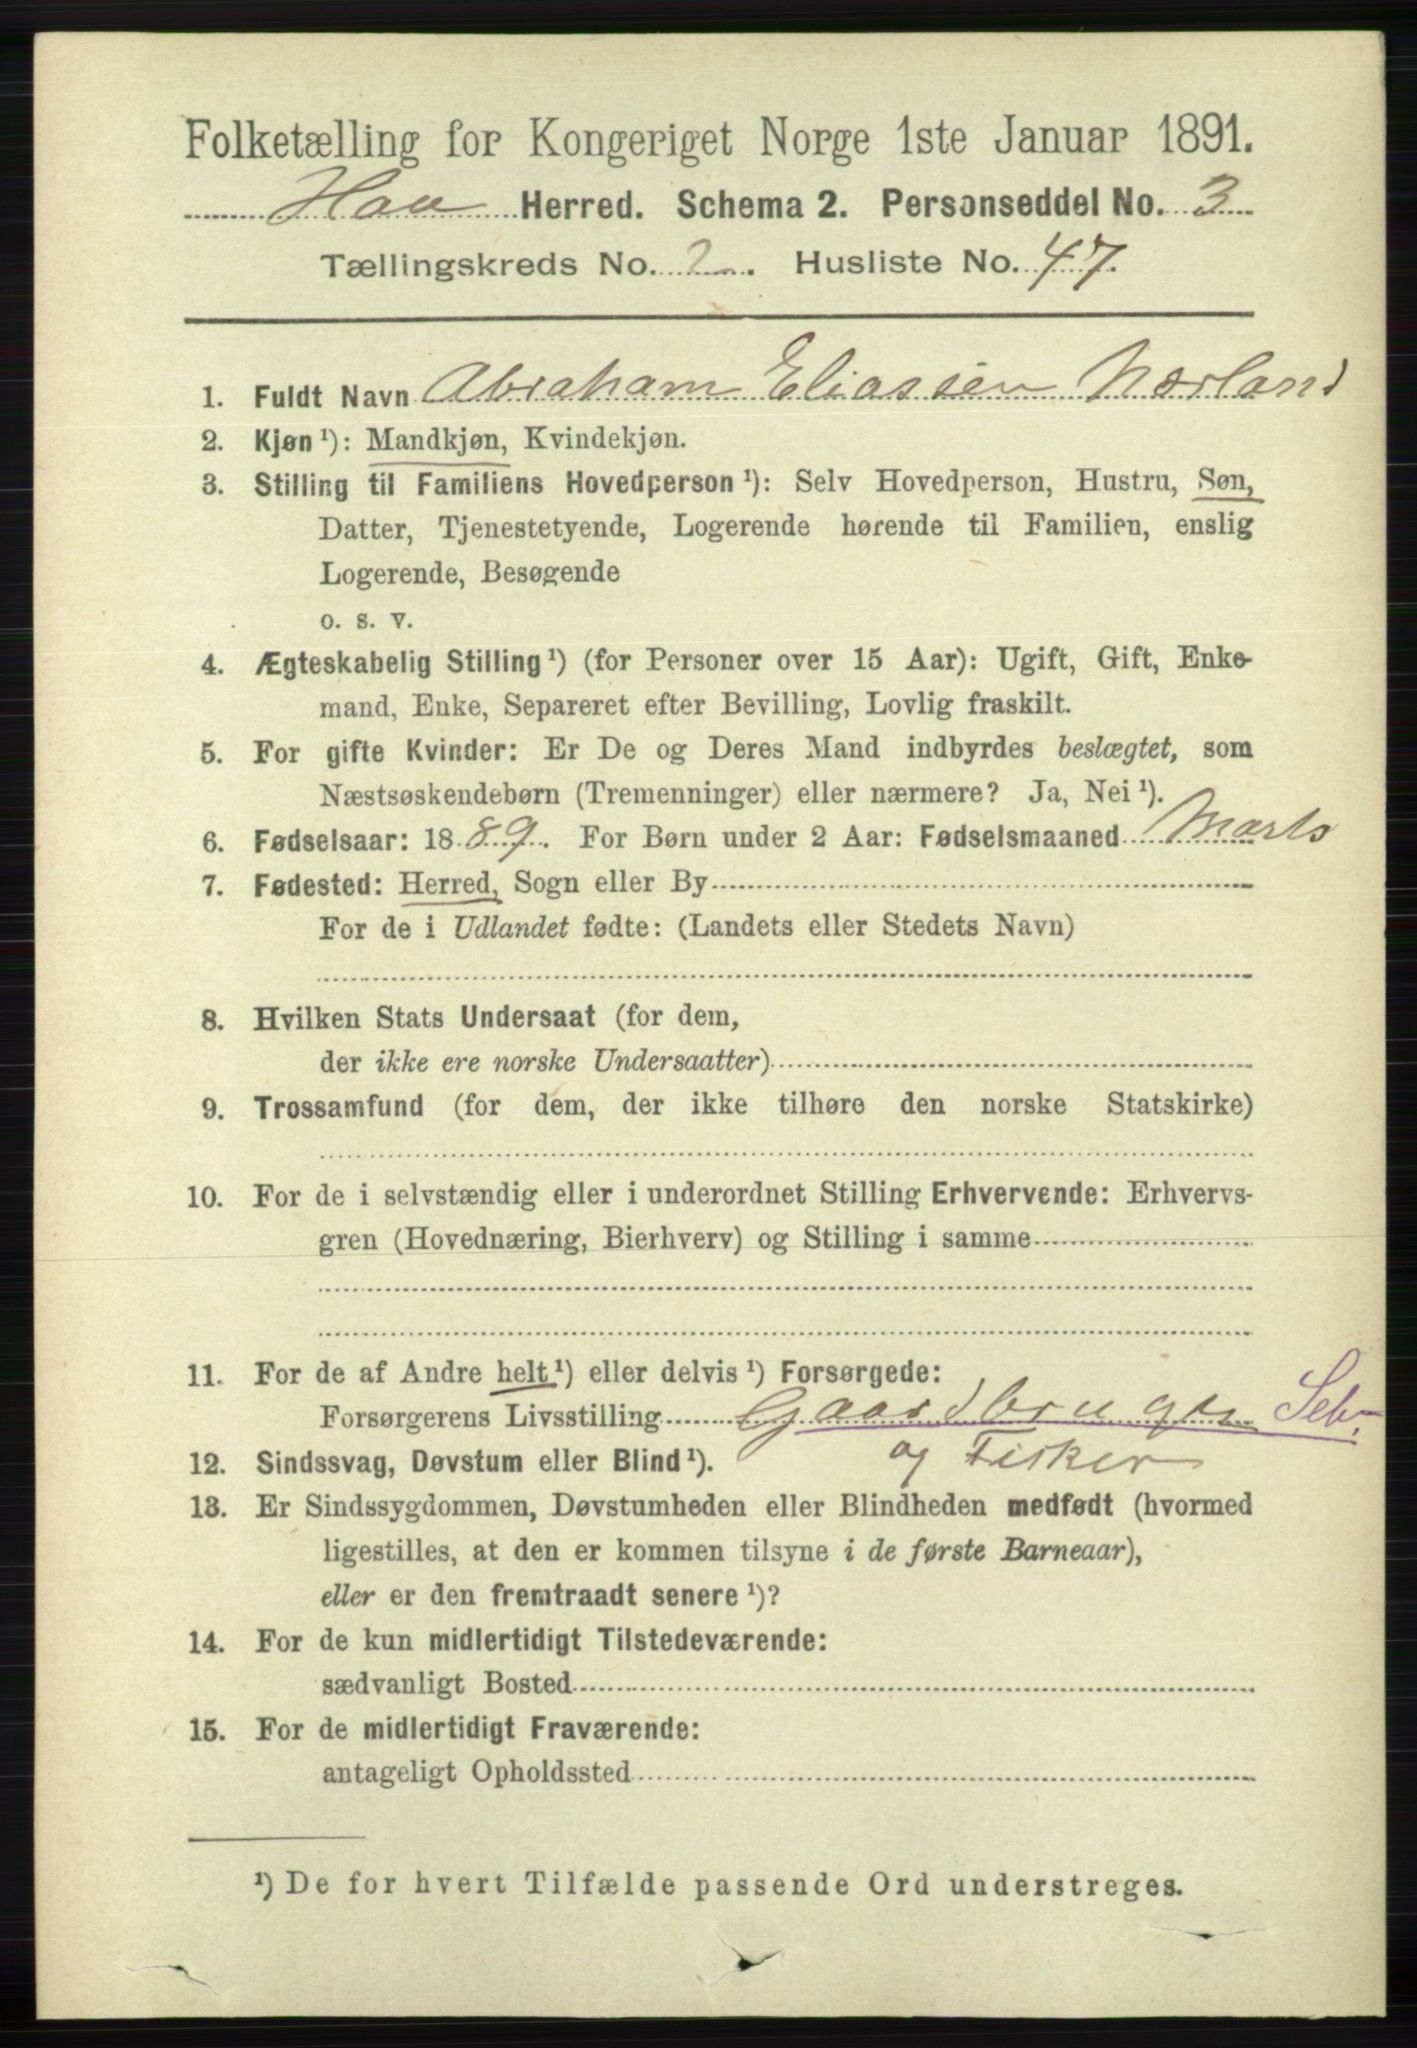 Folketælling for Kongeriget Norge 1ste Januar 1891.
Haa Herred. Schema 2. Personseddel No. 3
Tællingskreds No. 2. Husliste No. 47.
1. Fuldt Navn Abraham Eliassen Nærland
2. Kjøn ¹): Mandkjøn, Kvindekjøn.
3. Stilling til Familiens Hovedperson ¹): Selv Hovedperson, Hustru, Søn,
Datter, Tjenestetyende, Logerende hørende til Familien, enslig
Logerende, Besøgende
o. s. v.
4. Ægteskabelig Stilling ¹) (for Personer over 15 Aar): Ugift, Gift, Enke-
mand, Enke, Separeret efter Bevilling, Lovlig fraskilt.
5. For gifte Kvinder: Er De og Deres Mand indbyrdes beslægtet, som
Næstsøskendebørn (Tremenninger) eller nærmere? Ja, Nei ¹).
6. Fødselsaar: 1889. For Børn under 2 Aar: Fødselsmaaned Marts
7. Fødested: Herred, Sogn eller By
For de i Udlandet fødte: (Landets eller Stedets Navn)
8. Hvilken Stats Undersaat (for dem,
der ikke ere norske Undersaatter)
9. Trossamfund (for dem, der ikke tilhøre den norske Statskirke)
10. For de i selvstændig eller i underordnet Stilling Erhvervende: Erhvervs-
gren (Hovednæring, Bierhverv) og Stilling i samme
11. For de af Andre helt ¹) eller delvis ¹) Forsørgede:
Forsørgerens Livsstilling Gaardbruger Selv.
og Fisker
12. Sindssvag, Døvstum eller Blind ¹).
13. Er Sindssygdommen, Døvstumheden eller Blindheden medfødt (hvormed
ligestilles, at den er kommen tilsyne i de første Barneaar),
eller er den fremtraadt senere ¹)?
14. For de kun midlertidigt Tilstedeværende:
sædvanligt Bosted
15. For de midlertidigt Fraværende:
antageligt Opholdssted
¹) De for hvert Tilfælde passende Ord understreges.